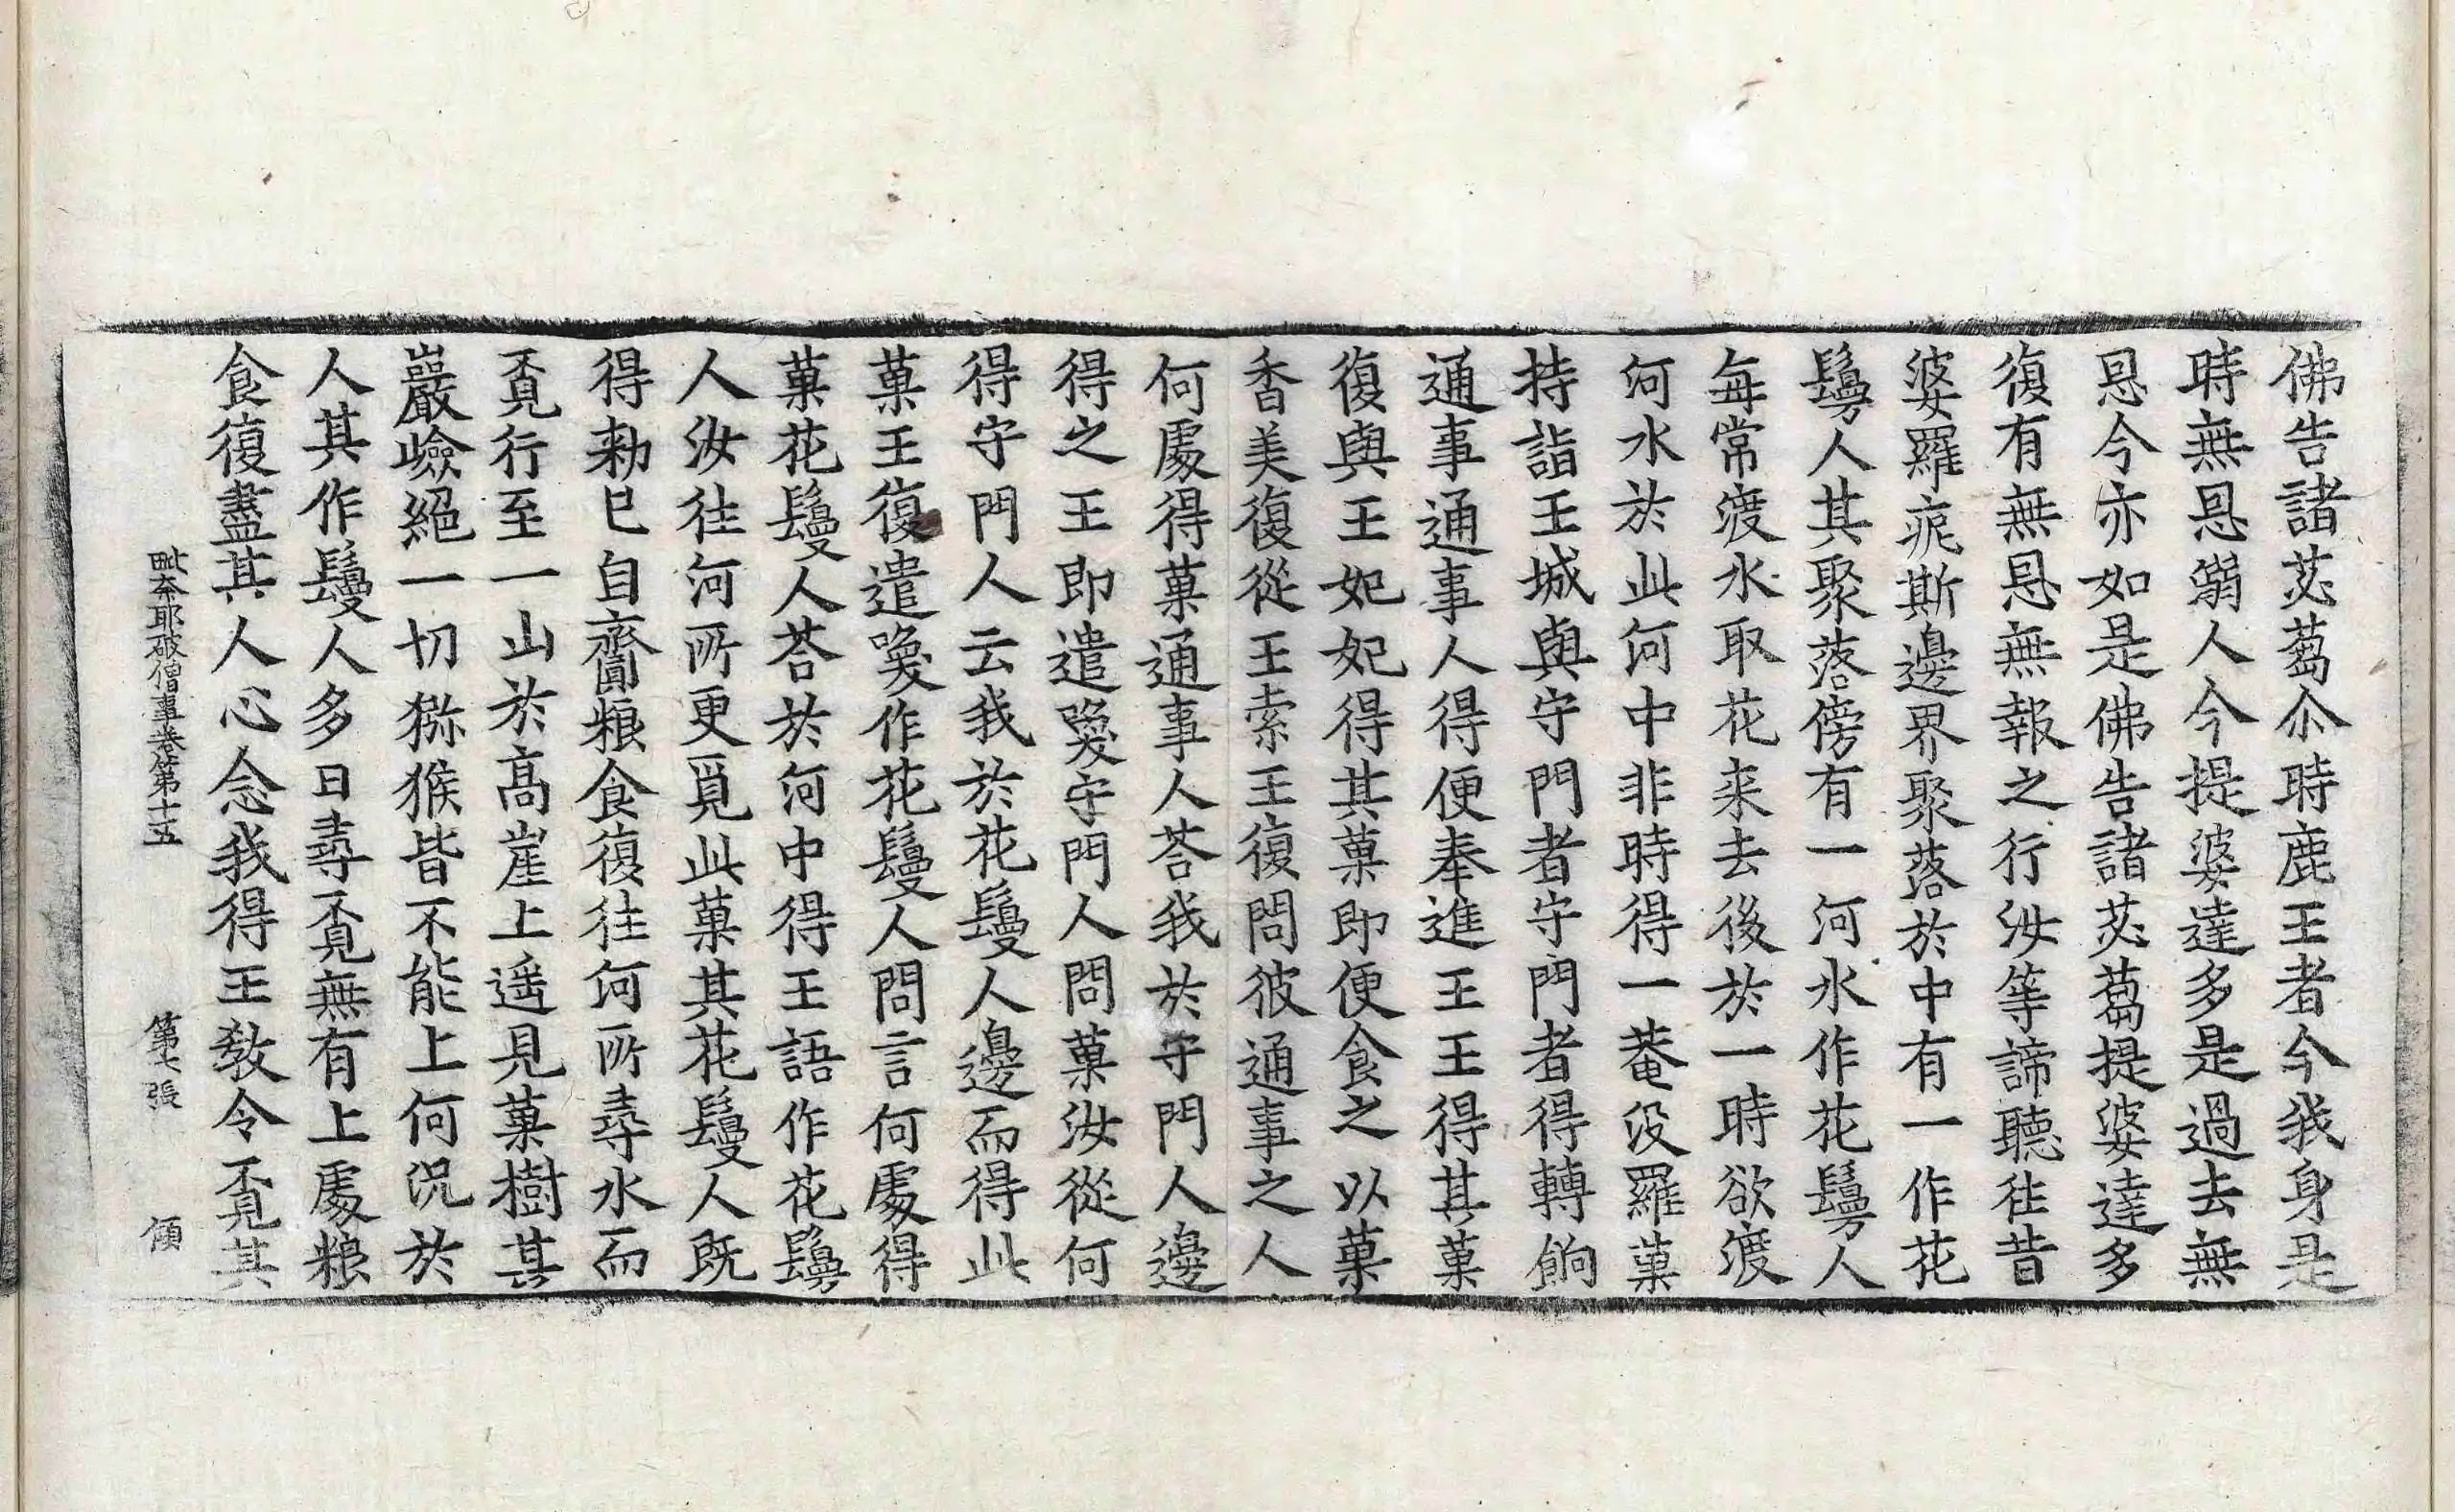 佛告諸苾蒭尒時鹿王者今我身是
時無恩溺人今提婆達多是過去無
恩今亦如是佛告諸苾蒭提婆達多
復有無恩無報之行汝等諦聽往昔
婆羅痆斯邊界聚落於中有一作花
鬘人其聚落傍有一河水作花鬘人
每常渡水取花来去後於一時欲渡
河水於此河中非時得一菴没羅菓
持詣王城與守門者守門者得轉餉
通事通事人得便奉進王王得其菓
復與王妃妃得其菓即便食之以菓
香美復從王索王復問彼通事之人
何處得菓通事人荅我於守門人邊
得之王即遣喚守門人問菓汝從何
得守門人云我於花鬘人邊而得此
菓王復遣喚作花鬘人問言何處得
菓花鬘人荅於河中得王語作花鬘
人汝往河所更覓此菓其花鬘人既
得勑已自齎粮食復往河所尋水而
覔行至一山於高崖上遥見菓樹其
巖嶮絕一切猕猴皆不能上何況於
人其作鬘人多日尋覔無有上處粮
食復盡其人心念我得王教令覔其
毗奈耶破僧事卷第十五 第七張 傾